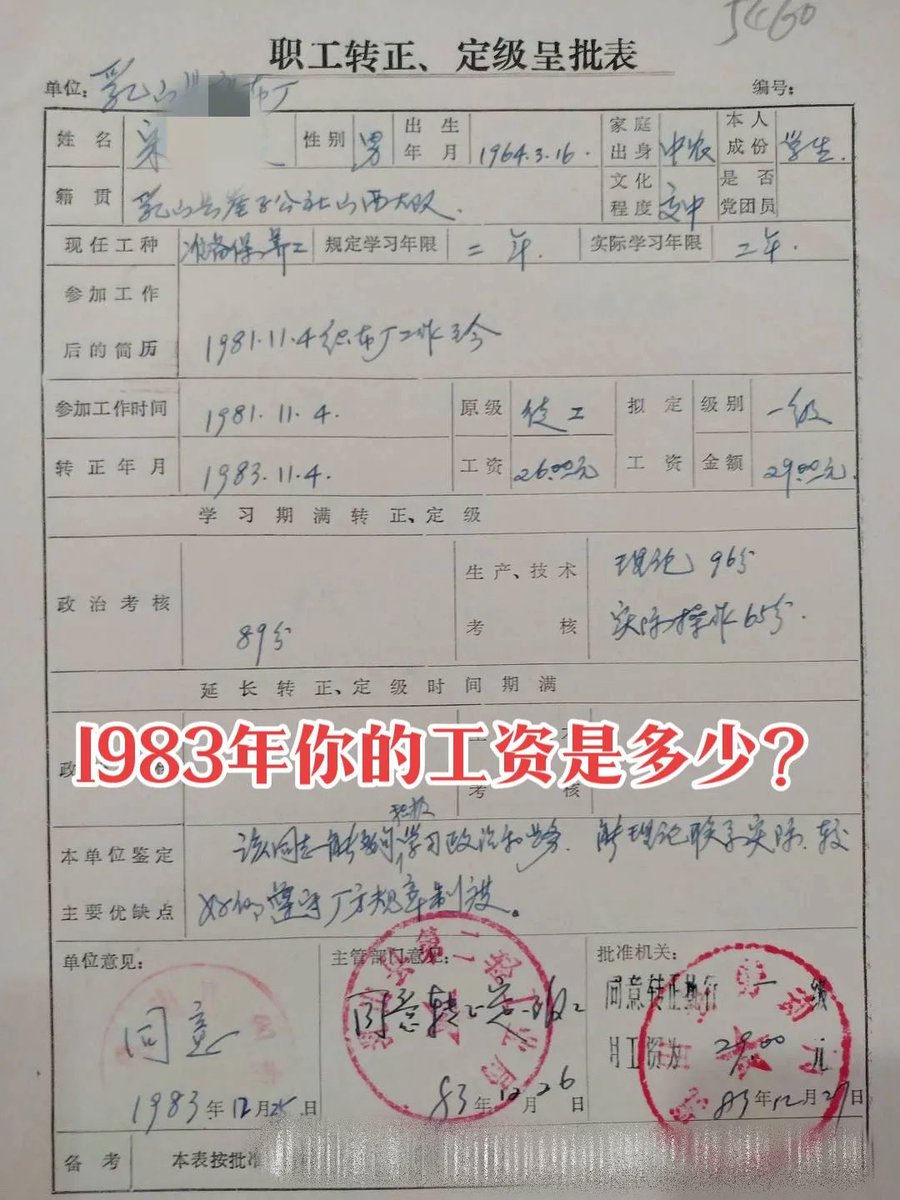 5460
职工转正、定级呈批表
单位: 乳山 布厂 编号:
姓名 宋 性别 男 出生年月 1964.3.16. 家庭出身 中农 本人成份 学生.
籍贯 乳山县崖子公社山西大队. 文化程度 高中 是否党团员
现任工种 准备保养工 规定学习年限 二年. 实际学习年限 二年.
参加工作
后的简历 1981.11.4织布厂工作至今
参加工作时间 1981.11.4. 原级 徒工 拟定级别 一级
转正年月 1983.11.4. 工资 26.00元 工资金额 29.00元.
学习期满转正、定级
政治考核 89分 生产、技术考核 理论 96分
实际操作65分.
延长转正、定级时间期满
1983年你的工资是多少?
政 考核
本单位鉴定 该同志能够积极学习政治和业务. 能理论联系实际、较
主要优缺点 好的遵守厂方规章制度。
单位意见: 主管部门意见: 批准机关:
同意 同意转正定一级 同意转正执行一级
月工资为 29.00 元
1983年12月25日 83年12月26日 83年12月27日
备考 本表按批准